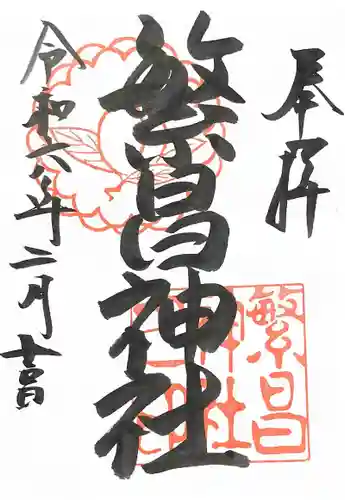 奉拝
繁昌神社
令和六年二月十四日
繁昌
神社
之印